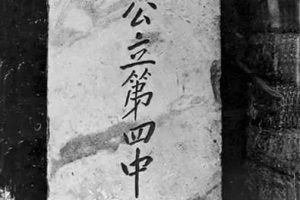 公立第四中